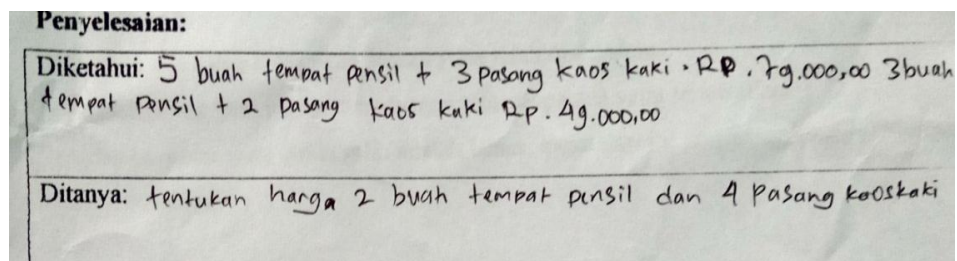 Penyelesaian:
Diketahui: 5 buah tempat pensil + 3 pasang kaos kaki . RP . 79.000,00 3 buah
tempat pensil + 2 pasang kaos kaki Rp. 49.000,00
Ditanya: tentukan harga 2 buah tempat pensil dan 4 pasang kaoskaki